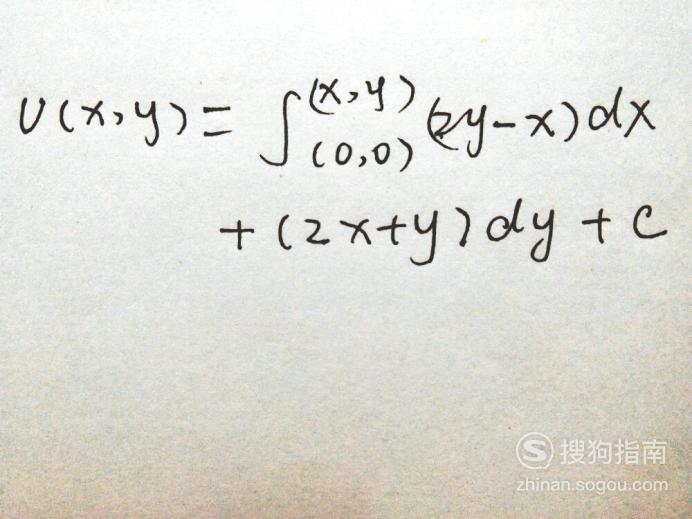 υ(x,y)=∫(0,0)(x,y)(2y-x)dx
+(2x+y)dy+C
搜狗指南
zhinan.sogou.com